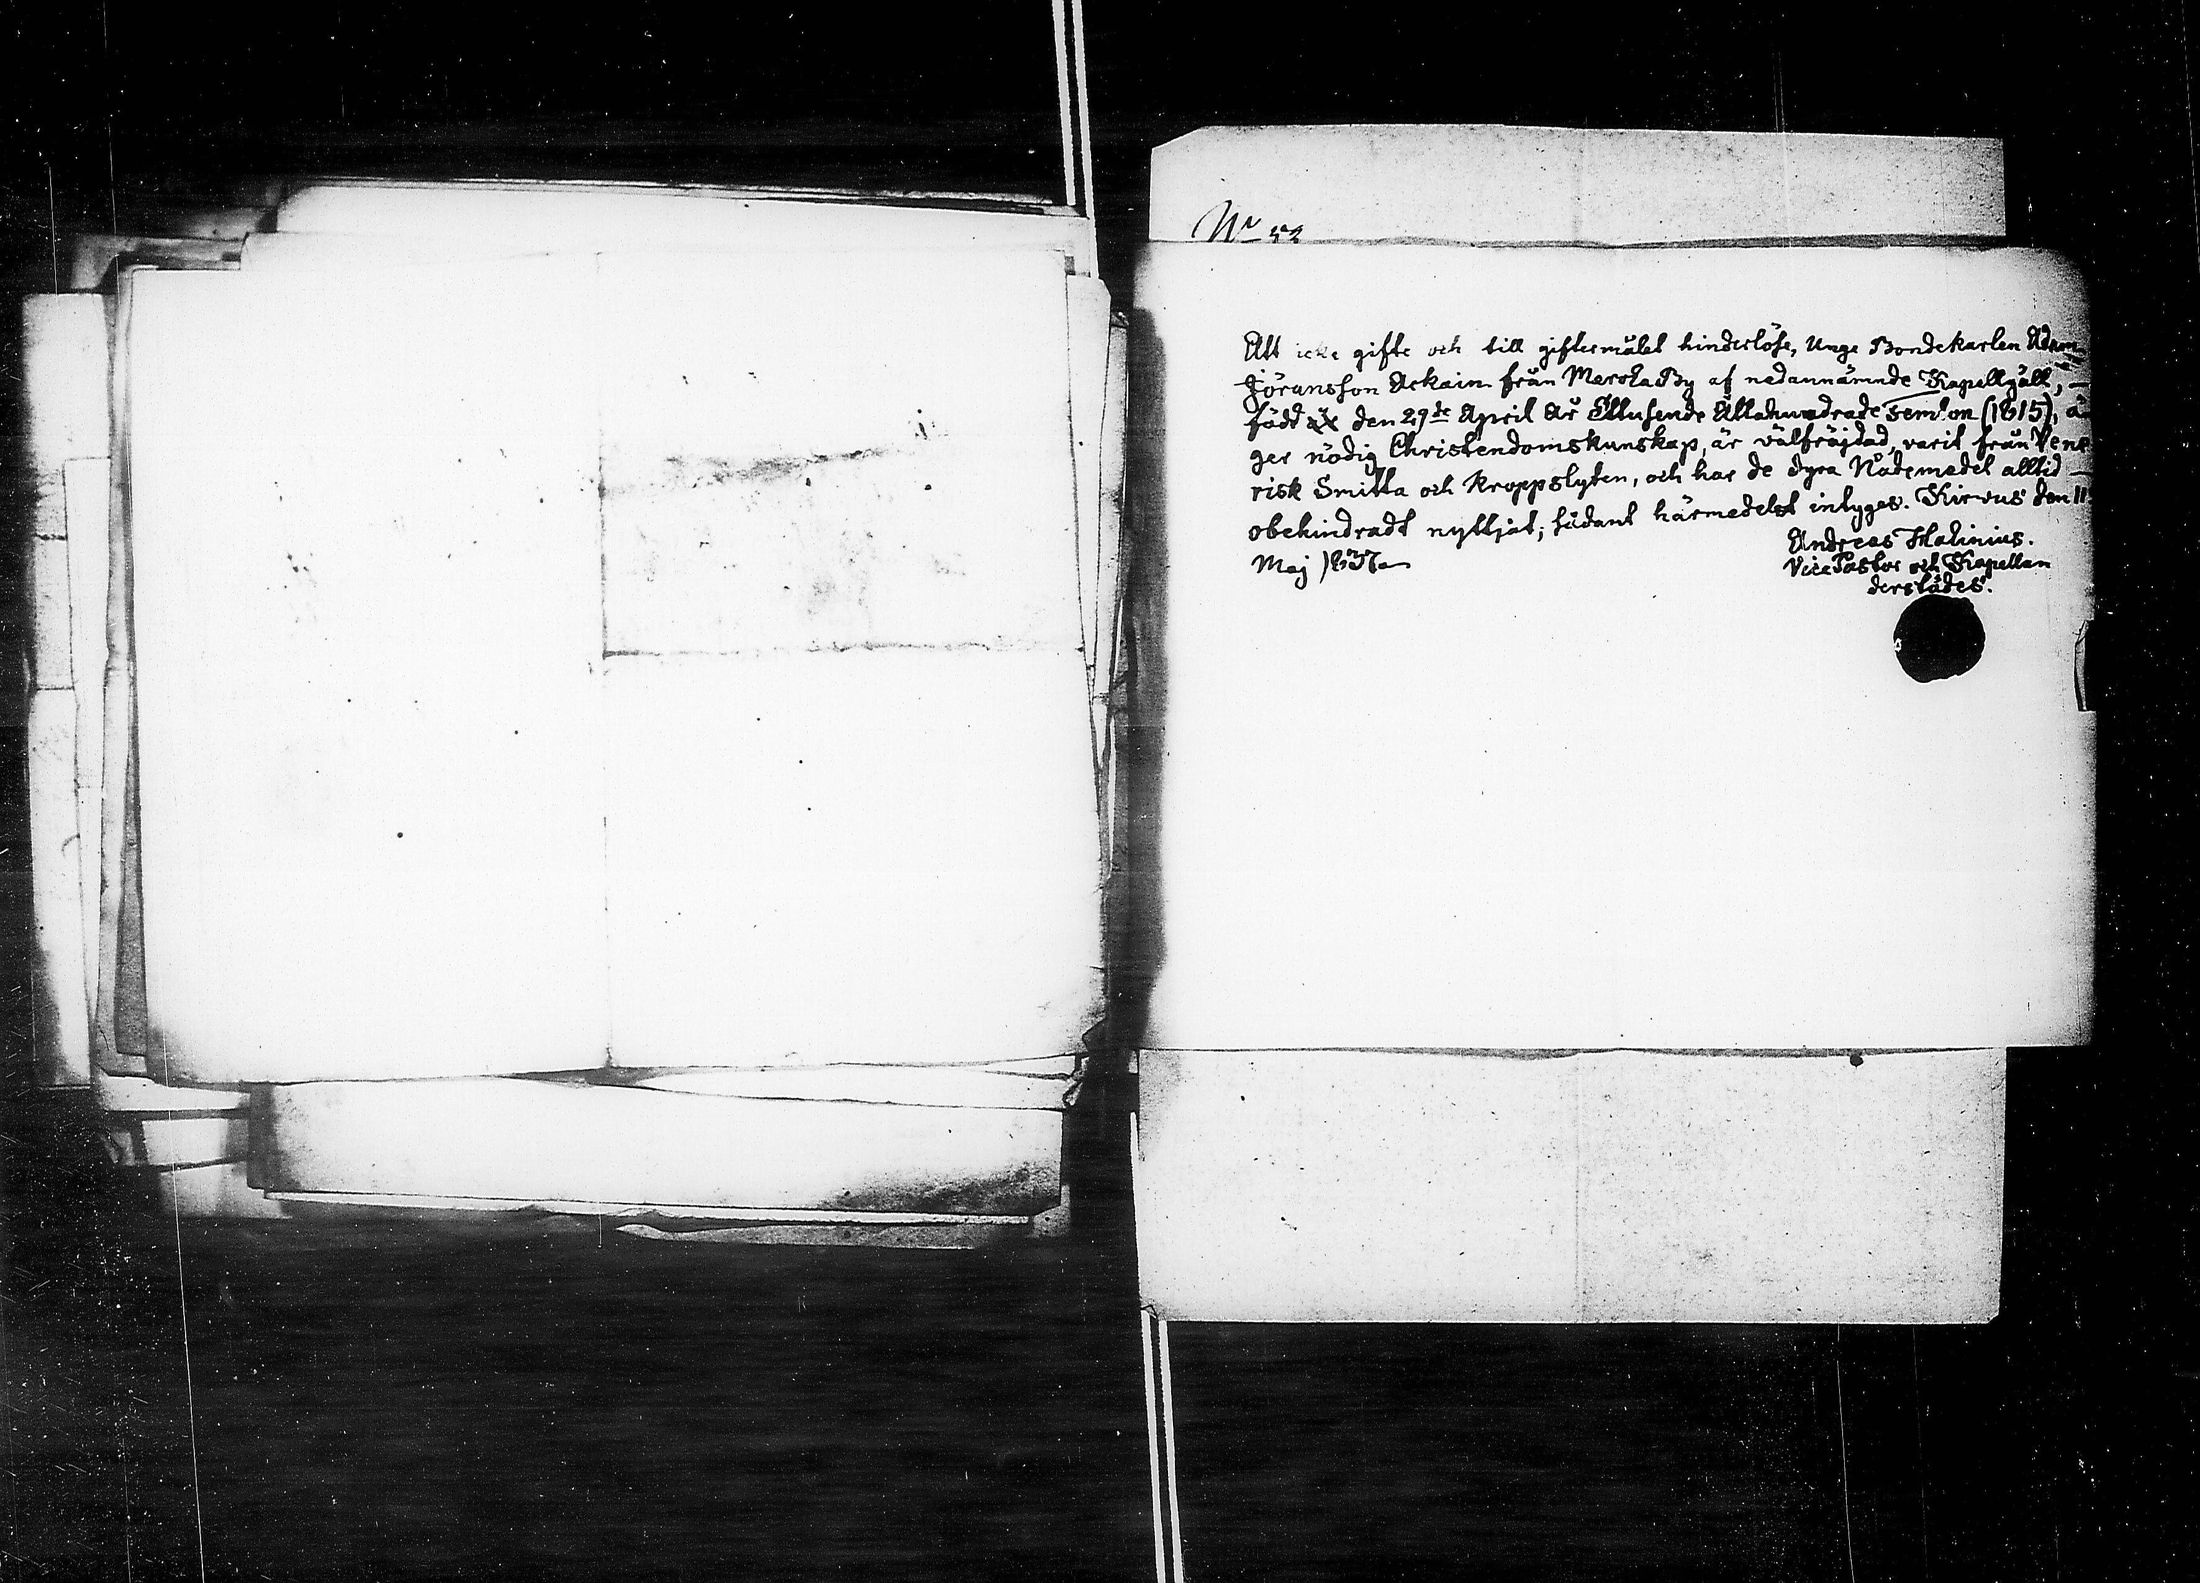 No 52
Att icke gifte och till giftermålet hinderlöse, Unge Bondekarlen Adam
Göransson Ackain från Merola By af nedannämnde Kapellgäll,
född den 29de April År Ettusende Åttahundrade femton (1815), ä-
ger nödig Christendomskunskap, är välfräjdad, varit från Vene
risk Smitta och kroppslyten, och har de dyra Nådemedel alltid
obehindradt nyttjat; sådant härmedelst intyges. Kirvus den 11
Maj 1837.
Andreas Halinius.
Vice Pastor och Kapellan
derstädes.